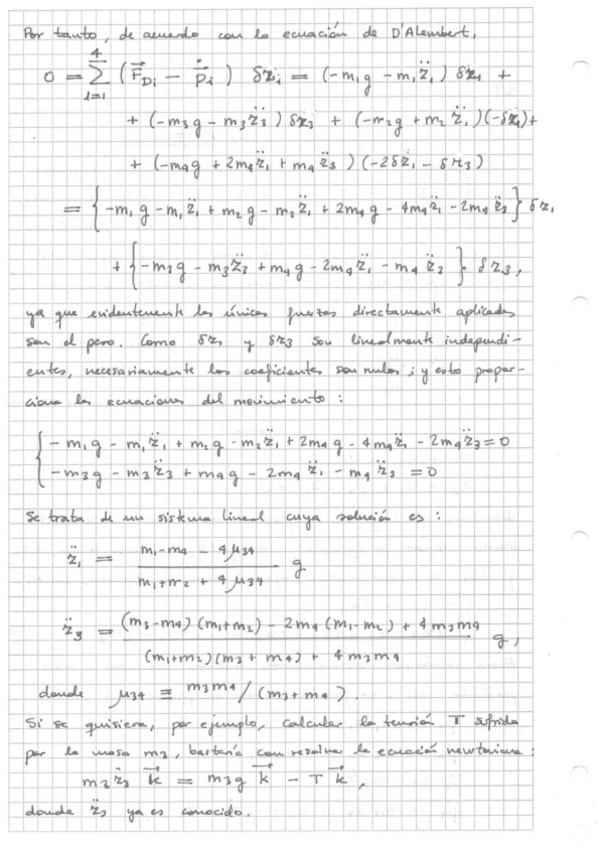 Por tanto, de acuerdo con la ecuación de D'Alembert,
0 = Σ_{i=1}^{4} (F⃗_{Di} − p⃗̇_i) δz_i = (−m₁g − m₁z̈₁) δz₁ +
+ (−m₃g − m₃z̈₃) δz₃ + (−m₂g + m₂z̈₁)(−δz₁) +
+ (−m₄g + 2m₄z̈₁ + m₄z̈₃)(−2δz₁ − δz₃)
= {−m₁g − m₁z̈₁ + m₂g − m₂z̈₁ + 2m₄g − 4m₄z̈₁ − 2m₄z̈₃} δz₁
+ {−m₃g − m₃z̈₃ + m₄g − 2m₄z̈₁ − m₄z̈₃} δz₃,
ya que evidentemente las únicas fuerzas directamente aplicadas
son el peso. Como δz₁ y δz₃ son linealmente independi-
entes, necesariamente los coeficientes son nulos; y esto propor-
ciona las ecuaciones del movimiento:
−m₁g − m₁z̈₁ + m₂g − m₂z̈₁ + 2m₄g − 4m₄z̈₁ − 2m₄z̈₃ = 0
−m₃g − m₃z̈₃ + m₄g − 2m₄z̈₁ − m₄z̈₃ = 0
Se trata de un sistema lineal cuya solución es:
z̈₁ = (m₁−m₄ − 4μ₃₄)/(m₁+m₂ + 4μ₃₄) g
z̈₃ = ((m₃−m₄)(m₁+m₂) − 2m₄(m₁−m₂) + 4m₃m₄)/((m₁+m₂)(m₃+m₄) + 4m₃m₄) g,
donde μ₃₄ ≡ m₃m₄/(m₃+m₄).
Si se quisiera, por ejemplo, calcular la tensión T sufrida
por la masa m₃, bastaría con resolver la ecuación newtoniana:
m₃z̈₃ k⃗ = m₃g k⃗ − T k⃗,
donde z̈₃ ya es conocido.